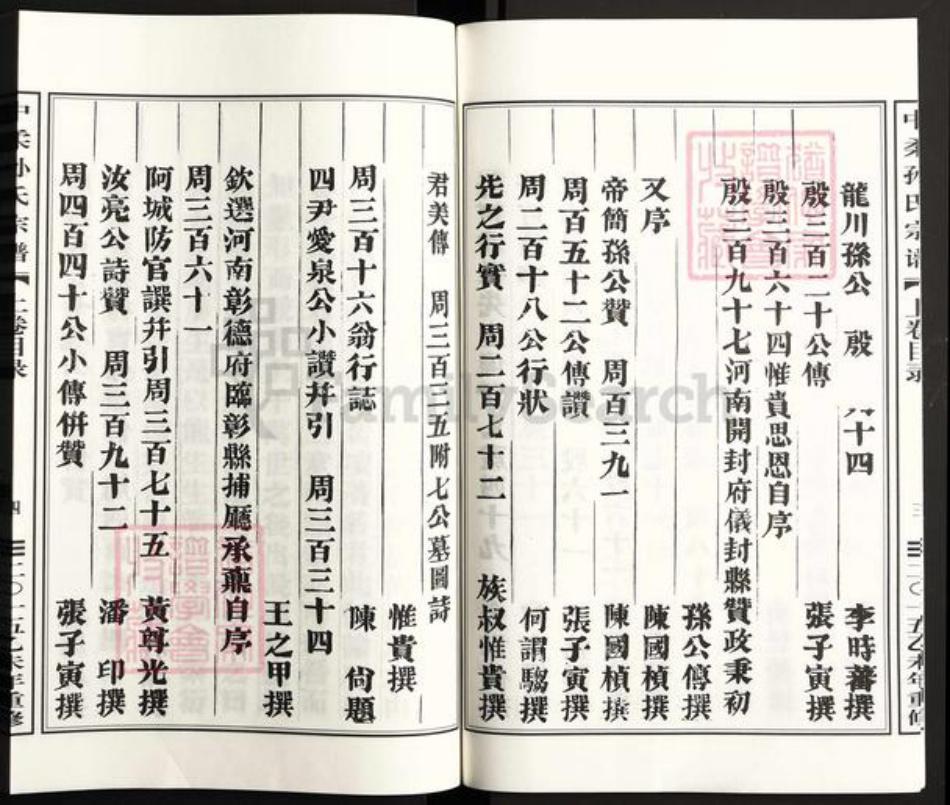 龍川孫公　殷　八十四　李時蕃撰
殷三百二十公傳　張子寅撰
殷三百六十四惟貴思恩自序
殷三百九十七河南開封府儀封縣贊政秉初
孫公傳撰
又序　陳國楨撰
帝簡孫公贊　周百三九一　陳國楨撰
周百五十二公傳讚　張子寅撰
周二百十八公行狀　何謂騶撰
先之行實　周二百七十二　族叔惟貴撰
君美傳　周三百三五附七公墓圖詩
惟貴撰
周三百十六翁行誌　陳尙題
四尹愛泉公小讚幷引　周三百三十四
王之甲撰
欽選河南彰德府臨彰縣捕廳承薰自序
周三百六十一
阿城防官譔幷引周三百七十五　黃尊光撰
汝亮公詩贊　周三百九十二　潘印撰
周四百四十公小傳併贊　張子寅撰
孙氏宗譜
上卷目录
三
二〇一五乙未年重修
四
二〇一五乙未年重修
FamilySearch